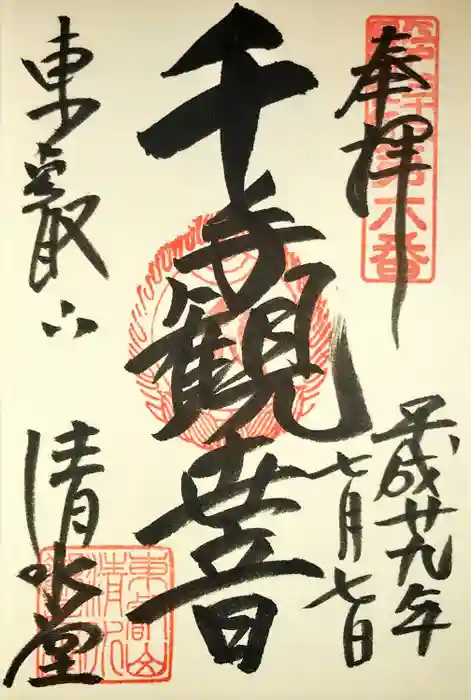 奉拝
第六番
平成廿九年
七月七日
千手観世音
東叡山
清水堂
東叡山